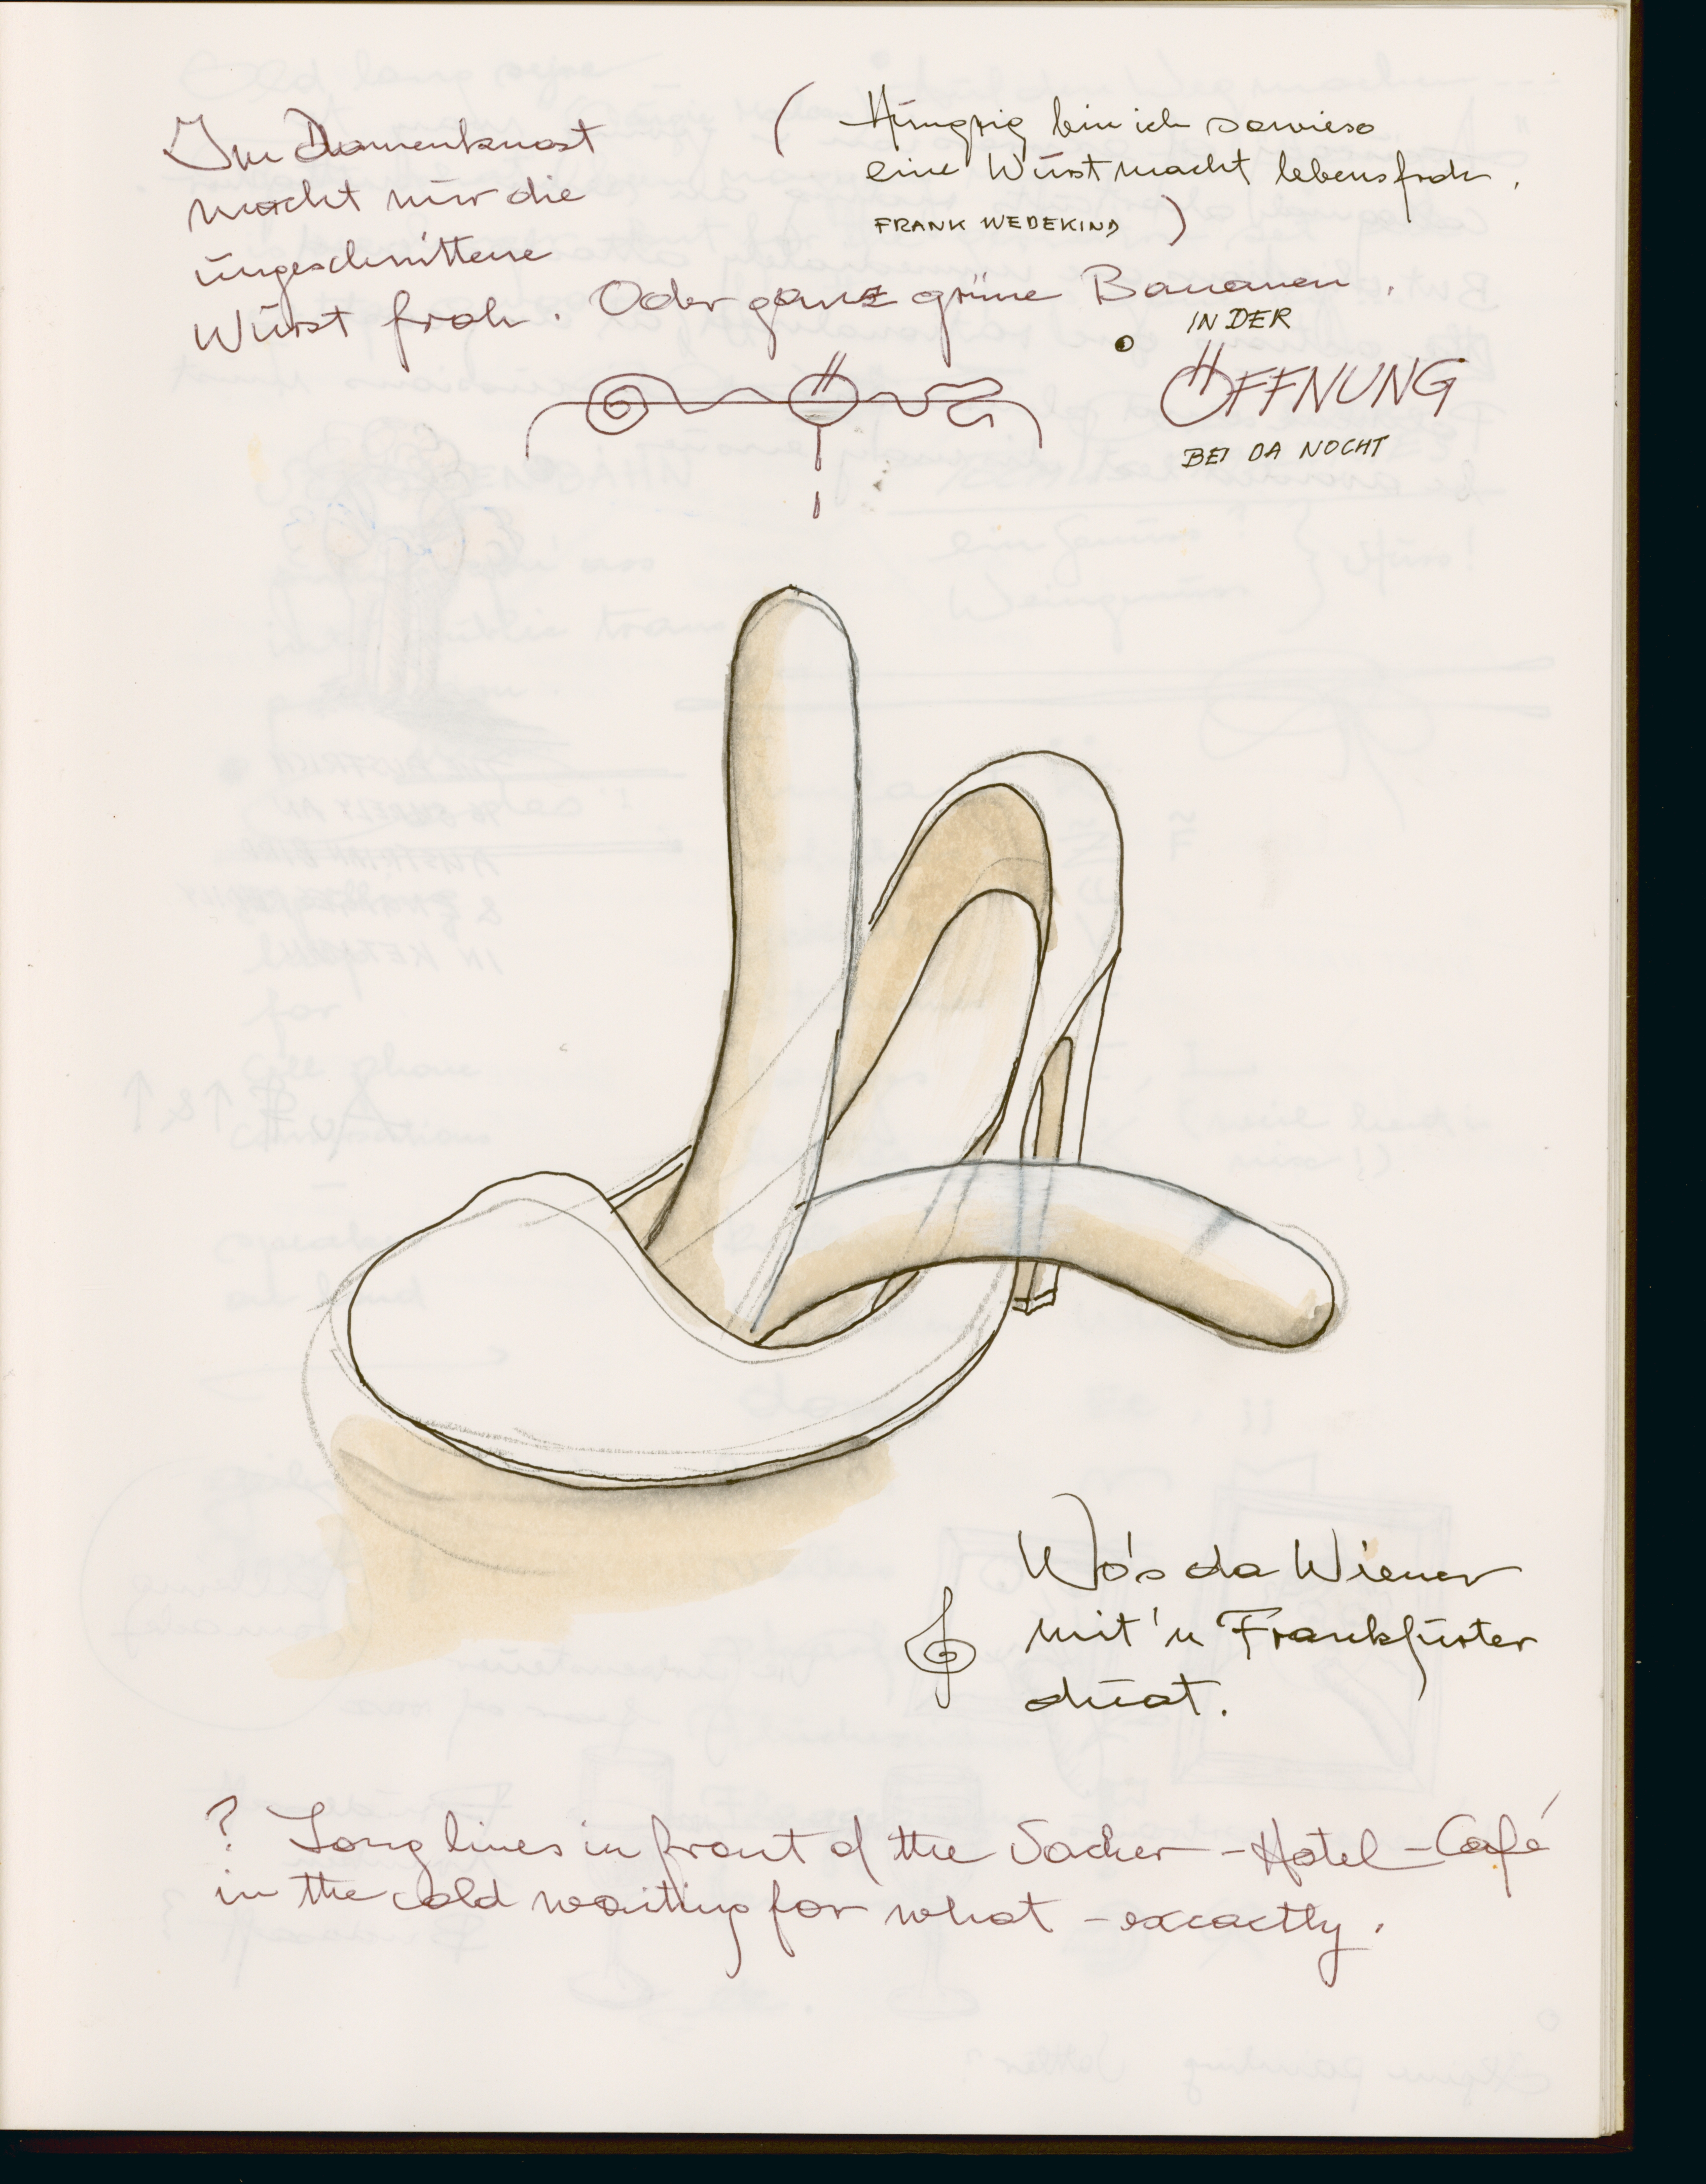 Im Damenknast
macht nur die
ungeschnittene
Wurst froh. Oder ganz grüne Bananen.
( Hungrig bin ich sowieso
eine Wurst macht lebensfroh.
FRANK WEDEKIND )
IN DER
ÖFFNUNG
BEI DA NOCHT
Wo's da Wiener
mit'n Frankfurter
duat.
? Long lines in front of the Sacher-Hotel-Café
in the cold waiting for what - excactly.